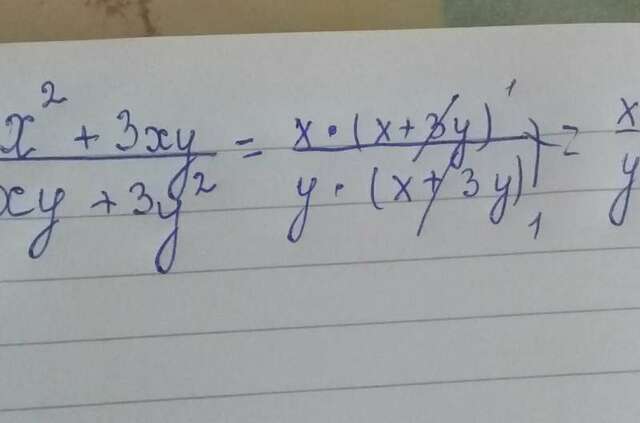 x² + 3xy / xy + 3y² = x · (x + 3y) ¹ / y · (x + 3y) ₁ = x / y